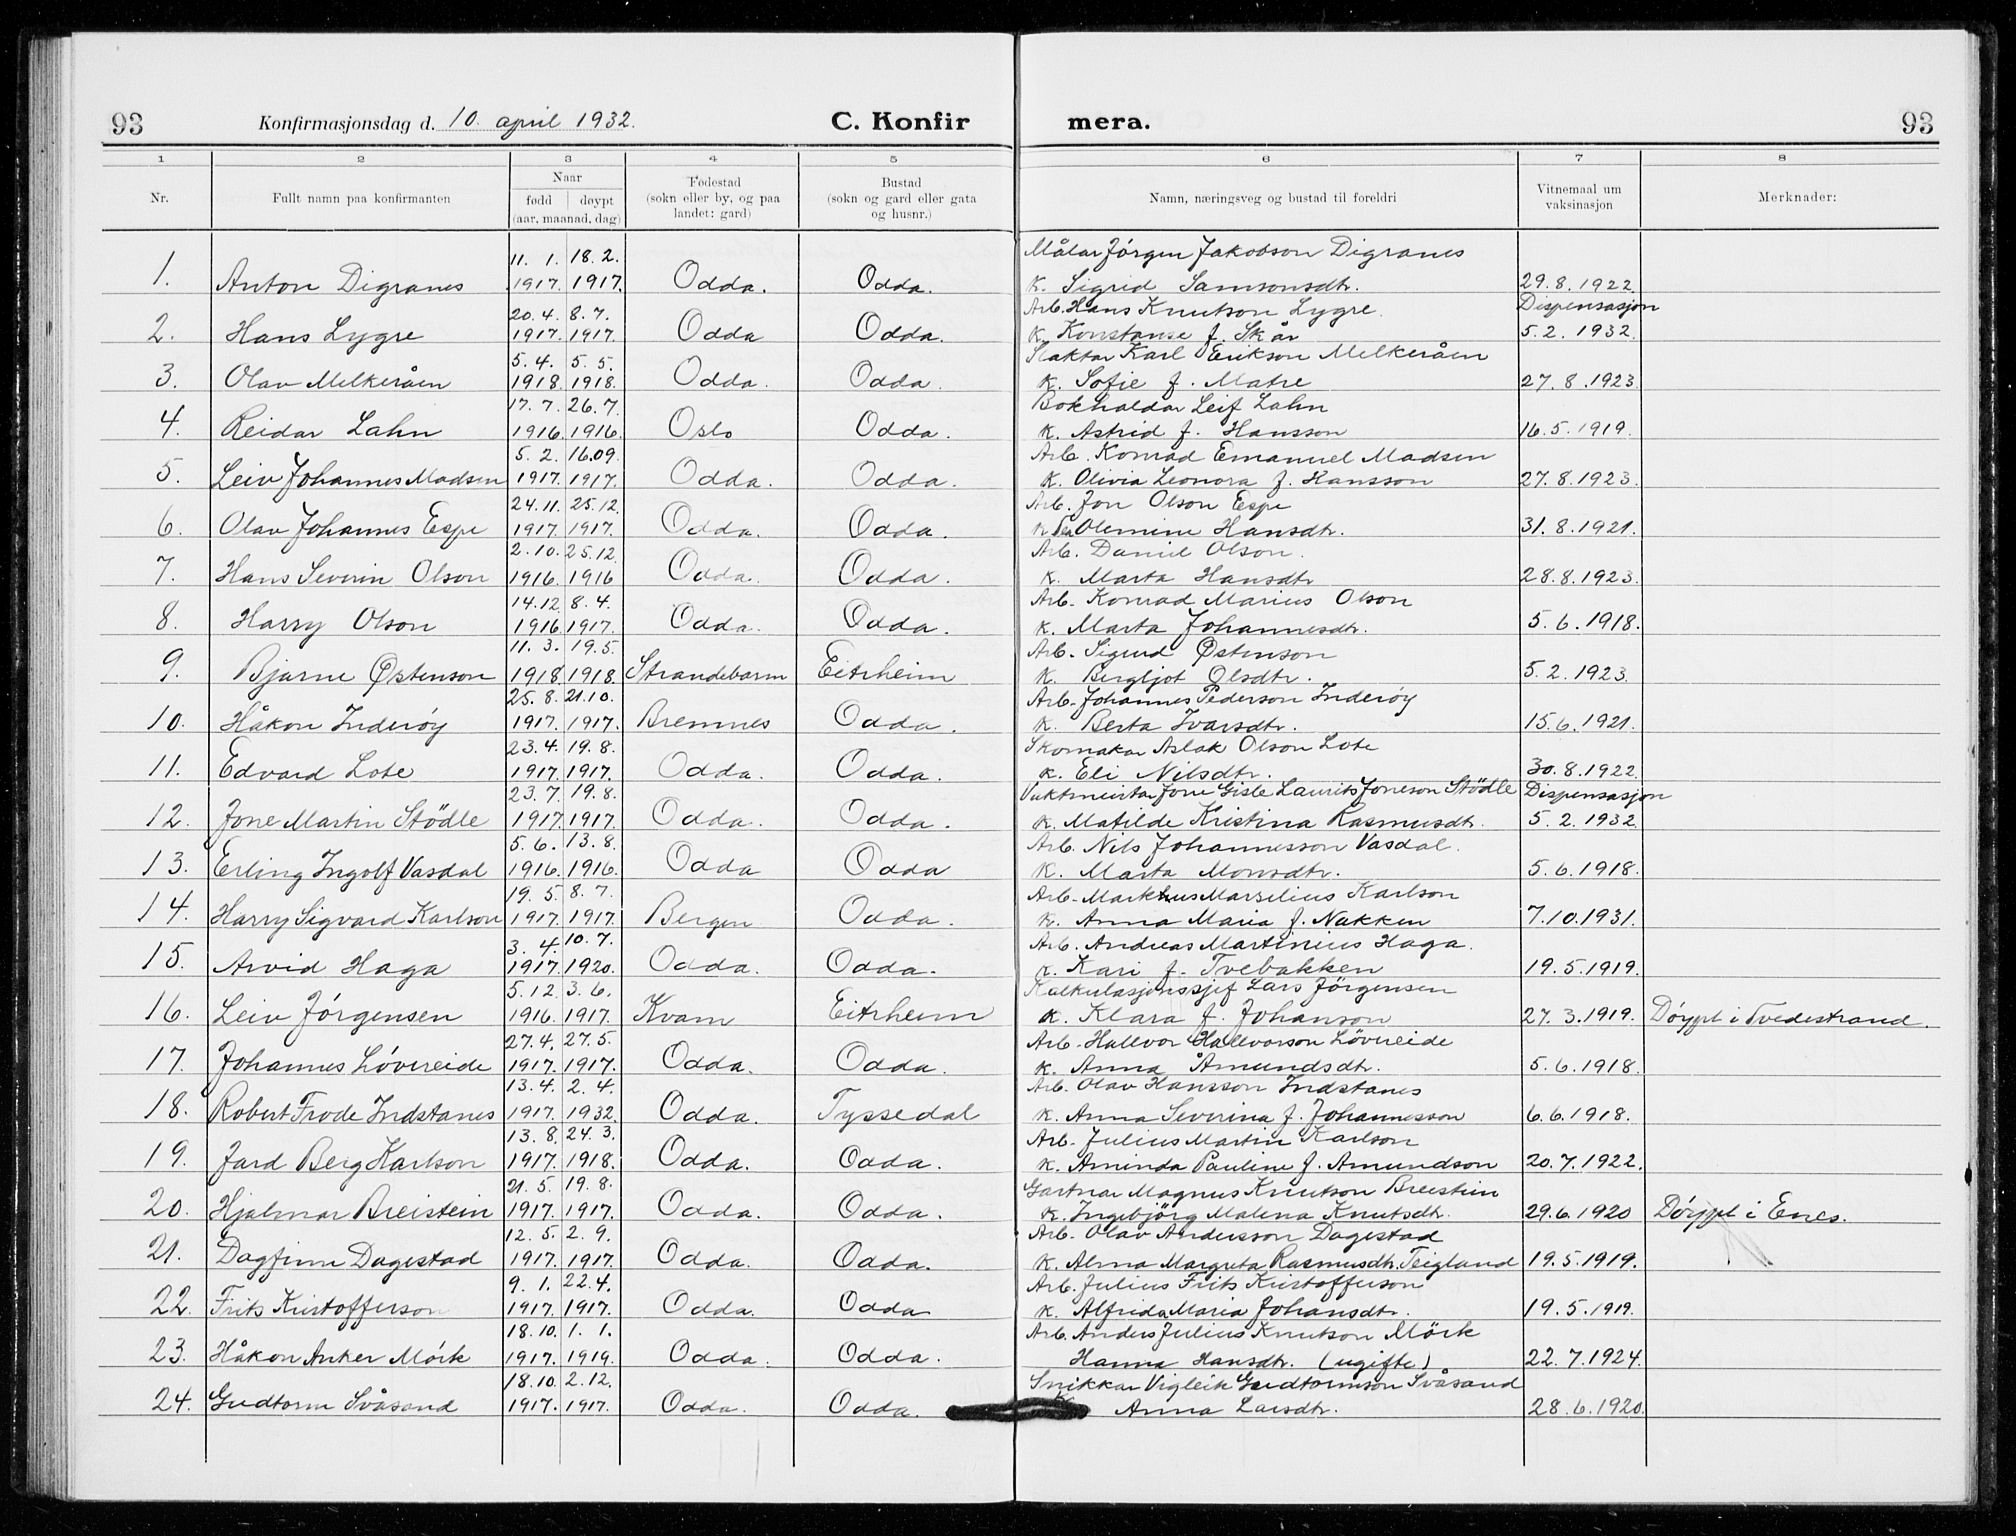 93 Konfirmasjonsdag d. 10. april 1932. C. Konfir mera. 93
1 2 3 4 5 6 7 8
Nr. Fullt namn paa konfirmanten Naar fødd døypt (aar, maanad, dag) Fødestad (sokn eller by, og paa landet: gard) Bustad (sokn og gard eller gata og husnr.) Namn, næringsveg og bustad til foreldri Vitnemaal um vaksinasjon Merknader:
11. 1. 18. 2. Målar Jörgen Jakobson Digranes
1. Anton Digranes 1917. 1917. Odda. Odda. K. Sigrid Samsonsdtr. 29.8.1922.
20. 4. 8. 7. Arb. Hans Knutson Lygre. Dispensasjon
2. Hans Lygre 1917. 1917. Odda Odda. K. Konstanse f. Skår 5. 2. 1932.
5. 4. 5. 5. Slaktar Karl Erikson Melkeråen
3. Olav Melkeråen 1918. 1918. Odda. Odda. K. Sofie f. Matre 27. 8. 1923.
17. 7. 26. 7. Bokhaldar Leif Lahn
4. Reidar Lahn 1916. 1916. Oslo Odda. K. Astrid f. Hansson 16. 5. 1919.
5. 2. 16.09. Arb. Konrad Emanuel Madsen
5. Leiv Johannes Madsen 1917. 1917. Odda. Odda. K. Olivia Leonora f. Hansson 27. 8. 1923.
24. 11. 25. 12. Arb. Jon Olson Espe
6. Olav Johannes Espe 1917. 1917. Odda. Odda. K Olemine Hansdtr. 31. 8. 1921.
2. 10. 25. 12 Arb. Daniel Olson.
7. Hans Severin Olson 1916. 1916 Odda. Odda. K. Marta Hansdtr 28. 8. 1923.
14. 12. 8. 4. Arb. Konrad Marius Olson
8. Harry Olson 1916 1917. Odda. Odda. K. Marta Johannesdtr. 5. 6. 1918.
11. 3. 19. 5. Arb. Sigurd Østenson
9. Bjarne Østenson 1918 1918. Strandebarm Eitrheim K. Bergljot Olsdtr. 5. 2. 1923.
25. 8. 21. 10. Arb. Johannes Pederson Inderöy
10. Håkon Inderöy 1917. 1917. Bremnes Odda. K. Berta Ivarsdtr. 15. 6. 1921.
23. 4. 19. 8. Skomakar Aslak Olson Lote
11. Edvard Lote 1917. 1917. Odda. Odda. K. Eli Nilsdtr. 30. 8. 1922.
23. 7. 19. 8. Vaktmeistar Jone Gisle Laurits Joneson Stödle Dispensasjon
12. Jone Martin Stödle 1917. 1917. Odda. Odda. K. Matilde Kristina Rasmusdtr. 5. 2. 1932.
5. 6. 13. 8. Arb. Nils Johannesson Vasdal.
13. Erling Ingolf Vasdal 1916. 1916. Odda Odda K. Marta Monsdtr. 5. 6. 1918.
19. 5. 8. 7. Arb. Markhus Marselius Karlson
14. Harry Sigvard Karlson 1917. 1917. Bergen Odda. K. Anna Maria f. Nakken 7. 10. 1931.
3. 4. 10. 7. Arb. Andreas Martinius Haga.
15. Arvid Haga 1917. 1920. Odda. Odda. K. Kari f. Tvebakken 19. 5. 1919.
5. 12. 3. 6. Kalkulasjonssjef Lars Jörgensen
16. Leiv Jörgensen 1916. 1917. Kvam Eitrheim K. Klara f. Johanson 27. 3. 1919. Döypt i Tvedestrand.
27. 4. 27. 5. Arb. Hallvor Hallvorson Lövereide
17. Johannes Lövereide 1917. 1917. Odda. Odda. K. Anna Åmundsdtr. 5. 6. 1918.
13. 4. 2. 4. Arb. Olav Hansson Indstanes
18. Robert Frode Indstanes 1917. 1932. Odda. Tyssedal K. Anna Severina f. Johannesson 6. 6. 1918.
13. 8. 24. 3. Arb. Julius Martin Karlson
19. Jard Berg Karlson 1917. 1918. Odda. Odda. K. Aminda Pauline f. Amundson 20. 7. 1922.
21. 5. 19. 8. Gartnar Magnus Knutson Breistein
20. Hjalmar Breistein 1917. 1917. Odda. Odda. K. Ingebjörg Malena Knutsdtr. 29. 6. 1920 Döypt i Enes.
12. 5. 2. 9. Arb. Olav Andersson Dagestad
21. Dagfinn Dagestad 1917. 1917. Odda. Odda. K. Alma Margreta Rasmusdtr. Teigland 19. 5. 1919.
9. 1. 22. 4. Arb. Julius Frits Kristofferson
22. Frits Kristofferson 1917. 1917. Odda. Odda K. Alfrida Maria Johansdtr. 19. 5. 1919.
18. 10. 1. 1. Arb. Anders Julius Knutson Mörk
23. Håkon Anker Mörk 1917. 1919. Odda. Odda. Hanna Hansdtr. (ugifte) 22. 7. 1924.
18. 10. 2. 12. Snikkar Vigleik Gudtormson Svåsand
24. Gudtorm Svåsand 1917. 1917. Odda. Odda. K. Anna Larsdtr. 28. 6. 1920.